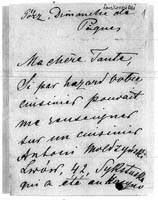 Dimanche de
Pâques
Ma chère Tante,
Si par hazard votre
cuisinier pouvait
me renseigner
sur un cuisinier
Antoni
Lwów, 42,
qui a été au